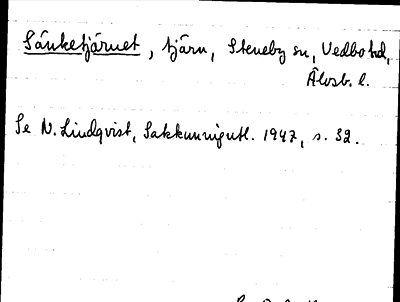 Sänketjärnet, tjärn, Steneby sn, Vedbo hd,
Älvsb. l.
Se N. Lindqvist, Sakkunnigutl. 1947, s. 32.